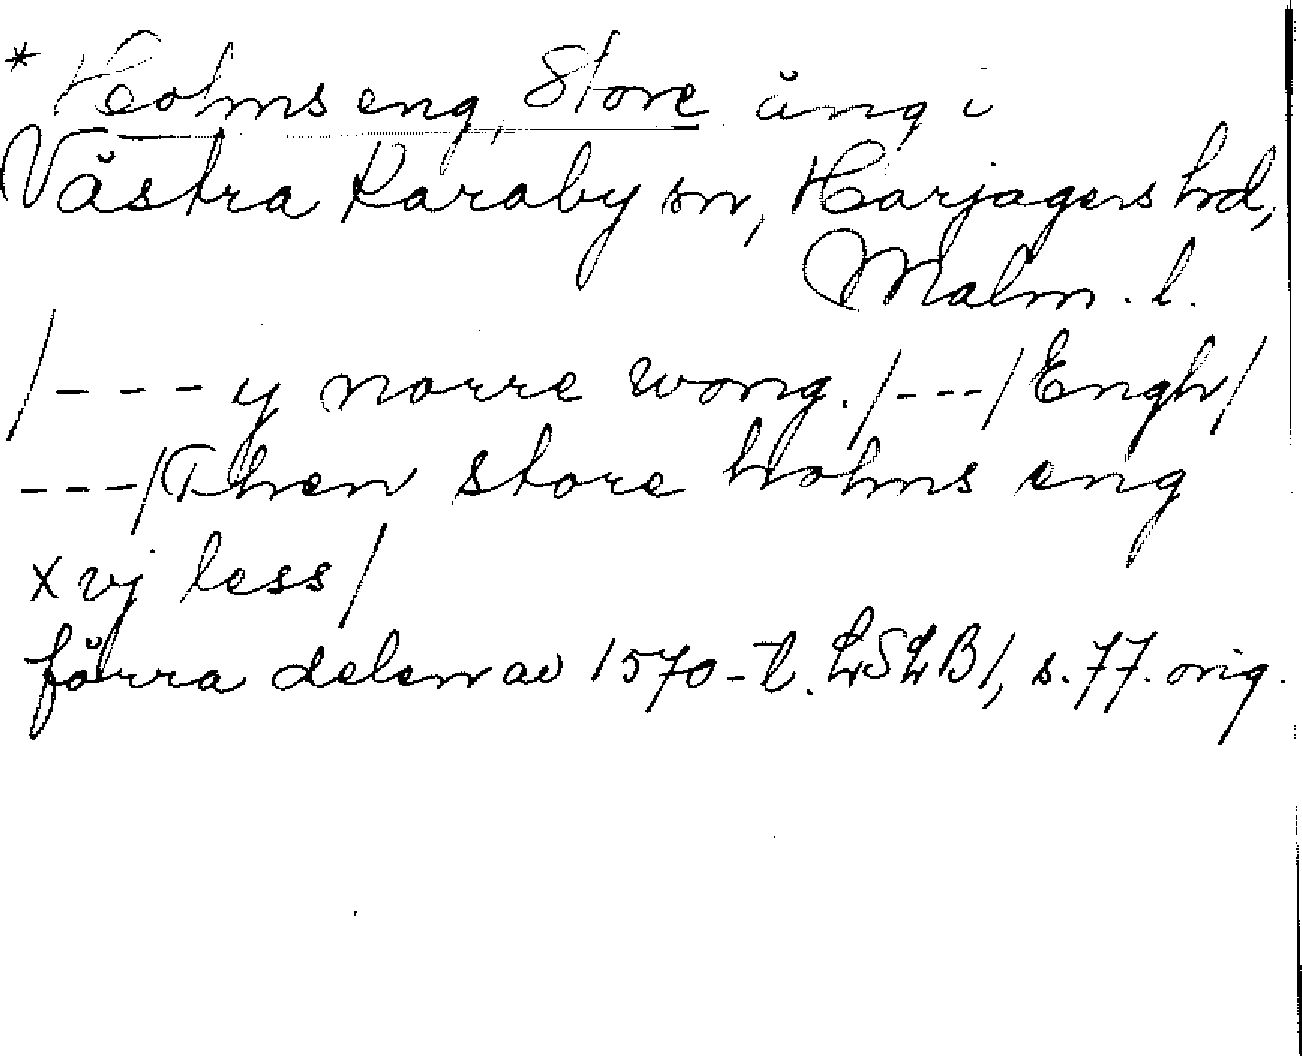 * Holms eng, Store äng i
Västra Karaby sn, Harjagers hd,
Malm. l.
/---y norre wong./---/Engh/
---/Then store holms eng
xvj less/
förra delen av 1570-t. LSLB1, s. 77. orig.